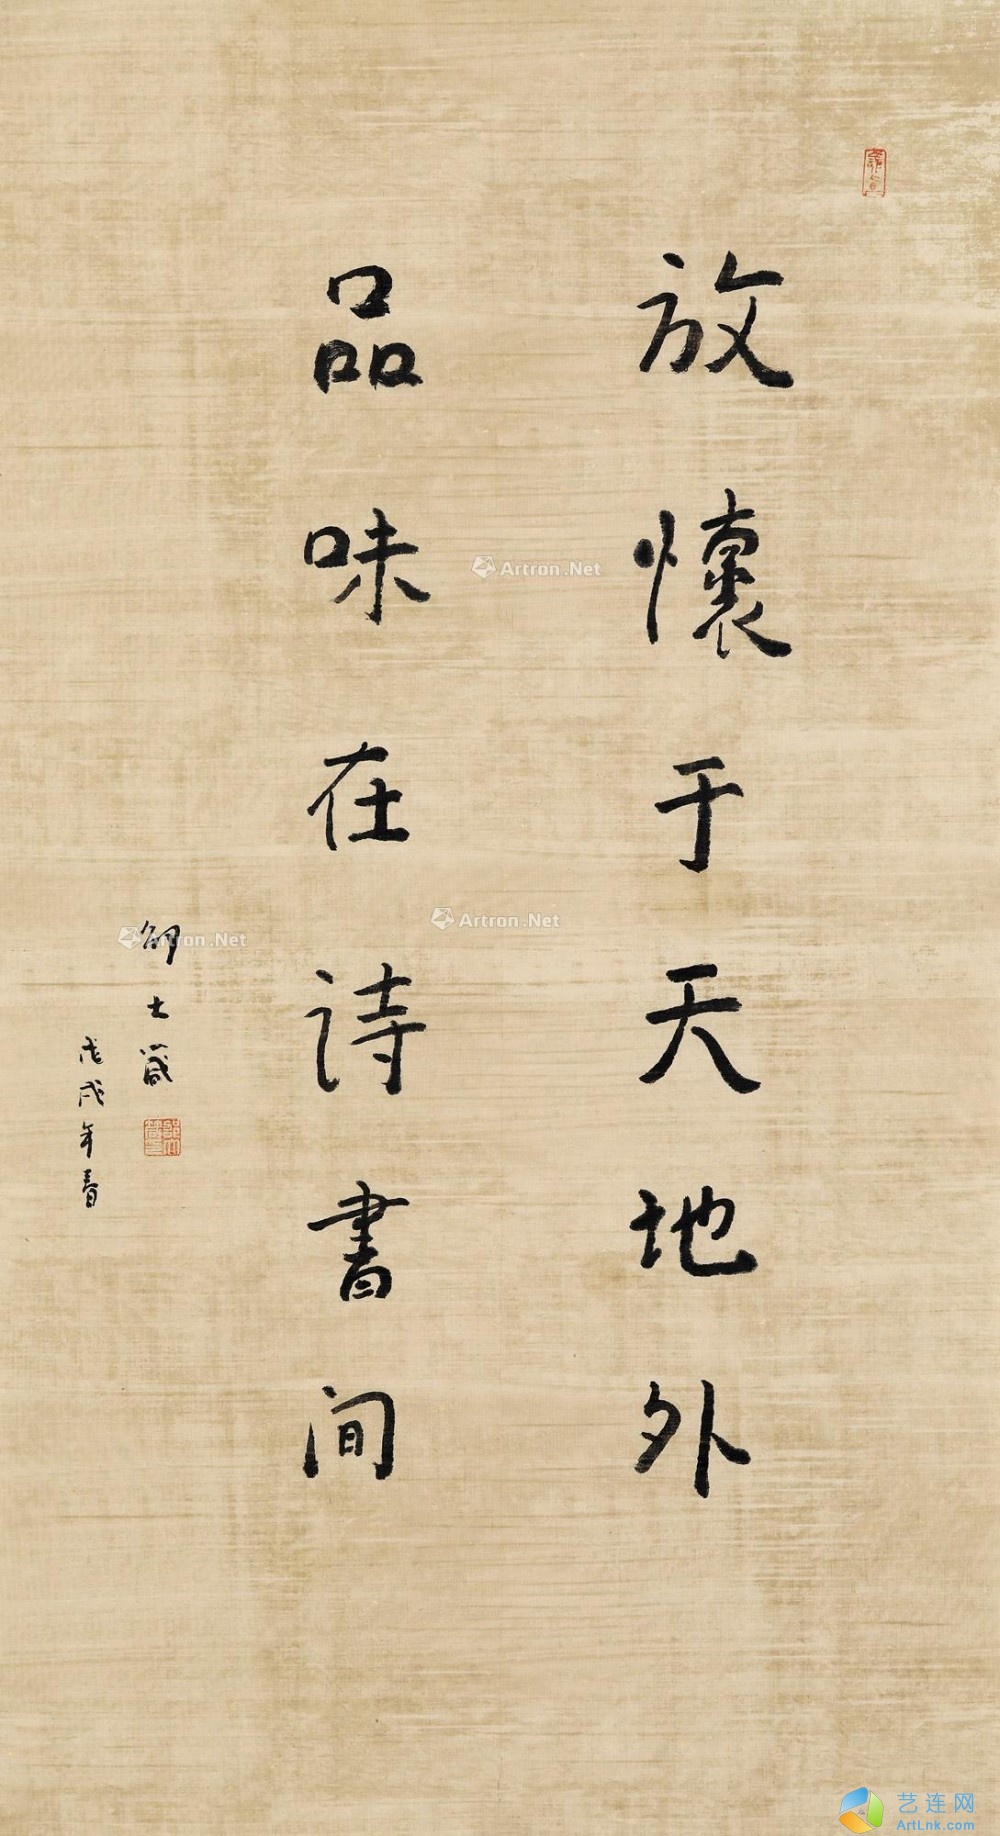 放懷于天地外
品味在诗書间
邵士箴
戊戌年春
Artron.Net
Artron.Net
Artron.Net
艺连网
ArtLnk.com